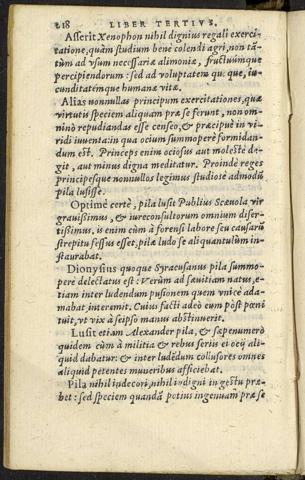 218 LIBER TERTIVS.
Asserit Xenophon nihil dignius regali exerci-
tatione, quàm studium bene colendi agri, non tã-
tùm ad vsum necessariæ alimoniæ, fructuúmque
percipiendorum: sed ad voluptatem quoque, iu-
cunditatémque humanæ vitæ.
Alias nonnullas principum exercitationes, quæ
virtutis speciem aliquam præ se ferunt, non om-
ninò repudiandas esse censeo, & præcipuè in vi-
ridi iuuenta: in qua ocium summoperè formidan-
dum est. Princeps enim ociosus aut molestè de-
git, aut minus digna meditatur. Proinde reges
principésque nonnullos legimus studiosè admodũ
pila lusisse.
Optimè certè, pila lusit Publius Scæuola vir
grauissimus, & iureconsultorum omnium diser-
tissimus, is enim cùm à forensi labore seu causarũ
strepitu fessus esset, pilæ ludo se aliquantulùm in-
staurabat.
Dionysius quoque Syracusanus pila summo-
pere delectatus est: Verùm ad sæuitiam natus, e-
tiam inter ludendum pusionem quem vnicè ada-
mabat interemit. Cuius facti adeò eum pòst pœni
tuit, vt vix à seipso manus abstinuerit.
Lusit etiam Alexander pila, & sæpenumerò
quidem cùm à militia & rebus seriis ei ocij ali-
quid dabatur: & inter ludẽdum collusores omnes
aliquid petentes muneribus afficiebat.
Pila nihil indecori, nihil indigni in gestu præ-
bet: sed speciem quandã potius ingenuam præ se